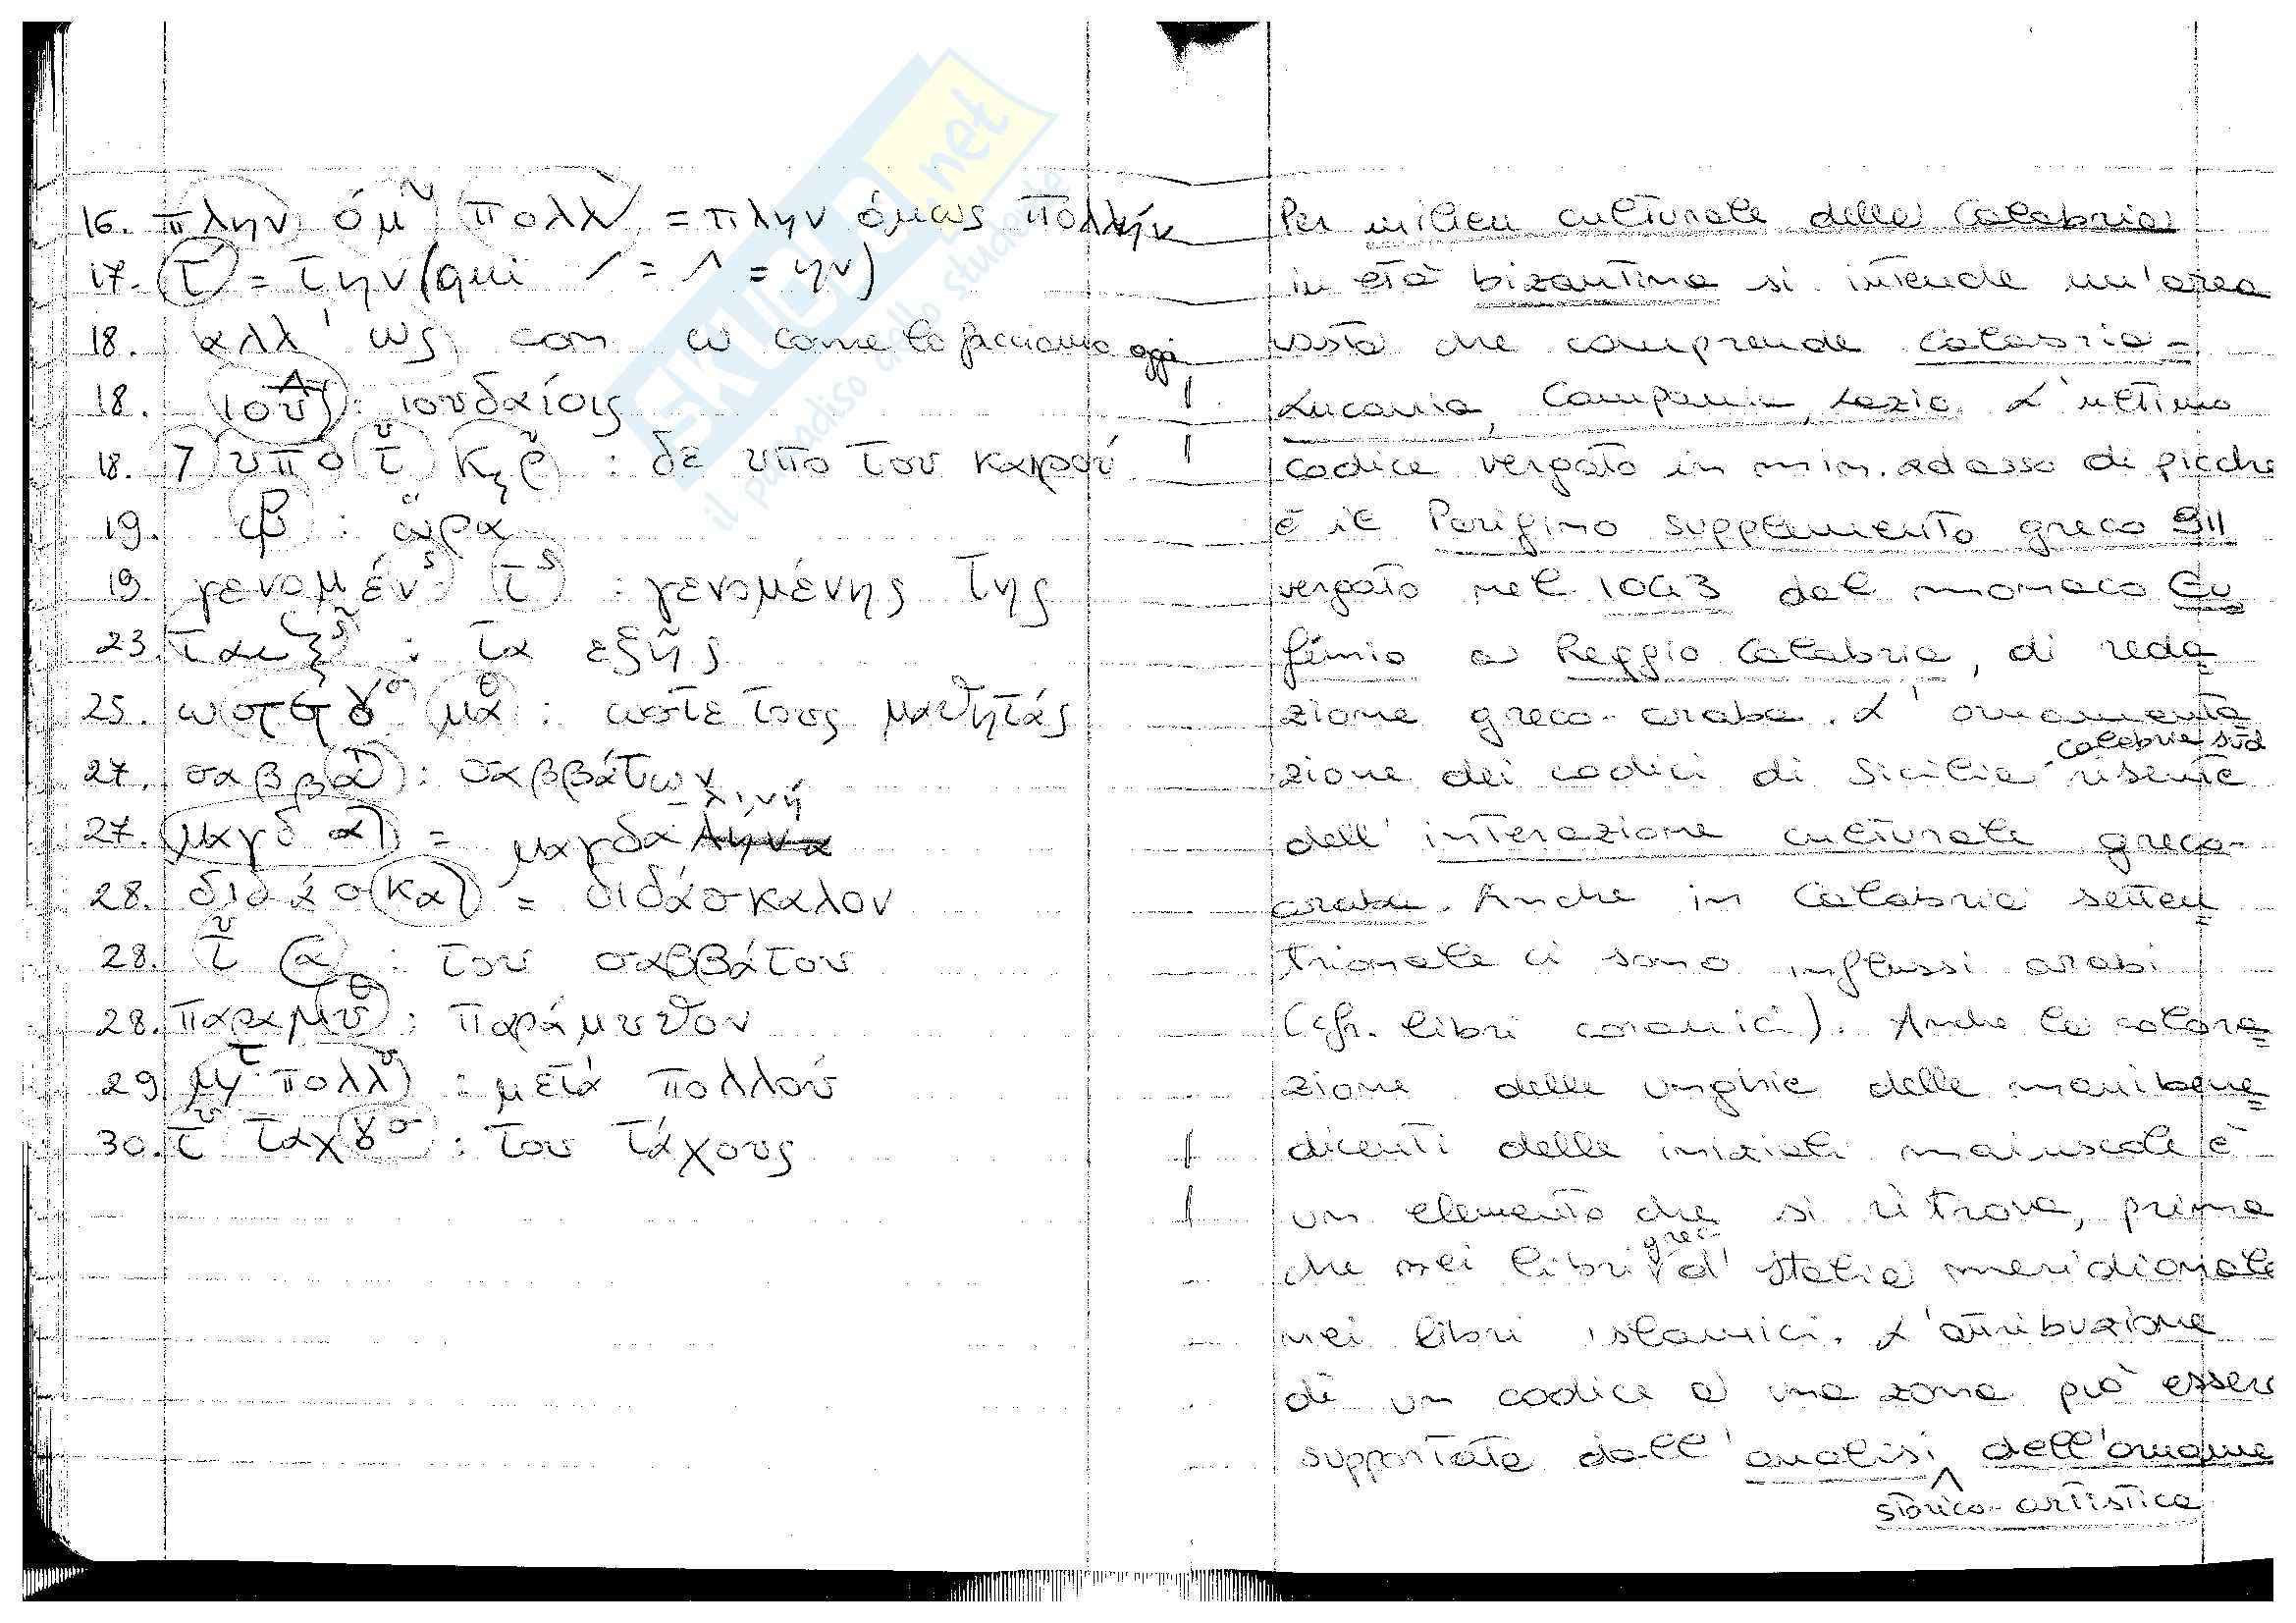 16. πλην όμ πολλ = πλην όμως πολλήν
17. τ = την (qui / = Λ = ην)
18. αλλ' ως con ω come lo facciamo oggi
18. ιου : ιουδαίοις
18. 7 υπο τ κρ : δε υπο του καιρού
19. ωρ : ώρα
19 γενομέν τ : γενομένης της
23. τα : τα εξῆς
25. μα : ωστε τους μαθητάς
27. σαββα : σαββάτων
27. μαγδαλ = μαγδαλινή
28. διδάσκαλ = διδάσκαλον
28. τ : του σαββάτου
28. παραμυ θ : παράμυθον
29 μ τ πολλ : μετά πολλού
30. τ ταχ : του τάχους
Per milieu culturale della Calabria
in età bizantina si intende un'area
vasta che comprende Calabria-
Lucania, Campania, Lazio. L'ultimo
codice vergato in min. ad asso di picche
è il Parigino supplemento greco 911
vergato nel 1043 dal monaco Eu
fimio a Reggio Calabria, di reda
zione greco-araba. L'ornamenta
zione dei codici di Sicilia-Calabria sud risente
dell'interazione culturale greco-
araba. Anche in Calabria setten
trionale ci sono influssi arabi
(cfr. libri coranici). Anche la colora
zione delle unghie delle mani bene
dicenti delle iniziali maiuscole è
un elemento che si ritrova, prima
che nei libri greci d'Italia meridionale
nei libri islamici. L'attribuzione
di un codice a una zona può esser
supportata dall'analisi storico-artistica dell'orname
SKUOLA.net
il paradiso dello studente